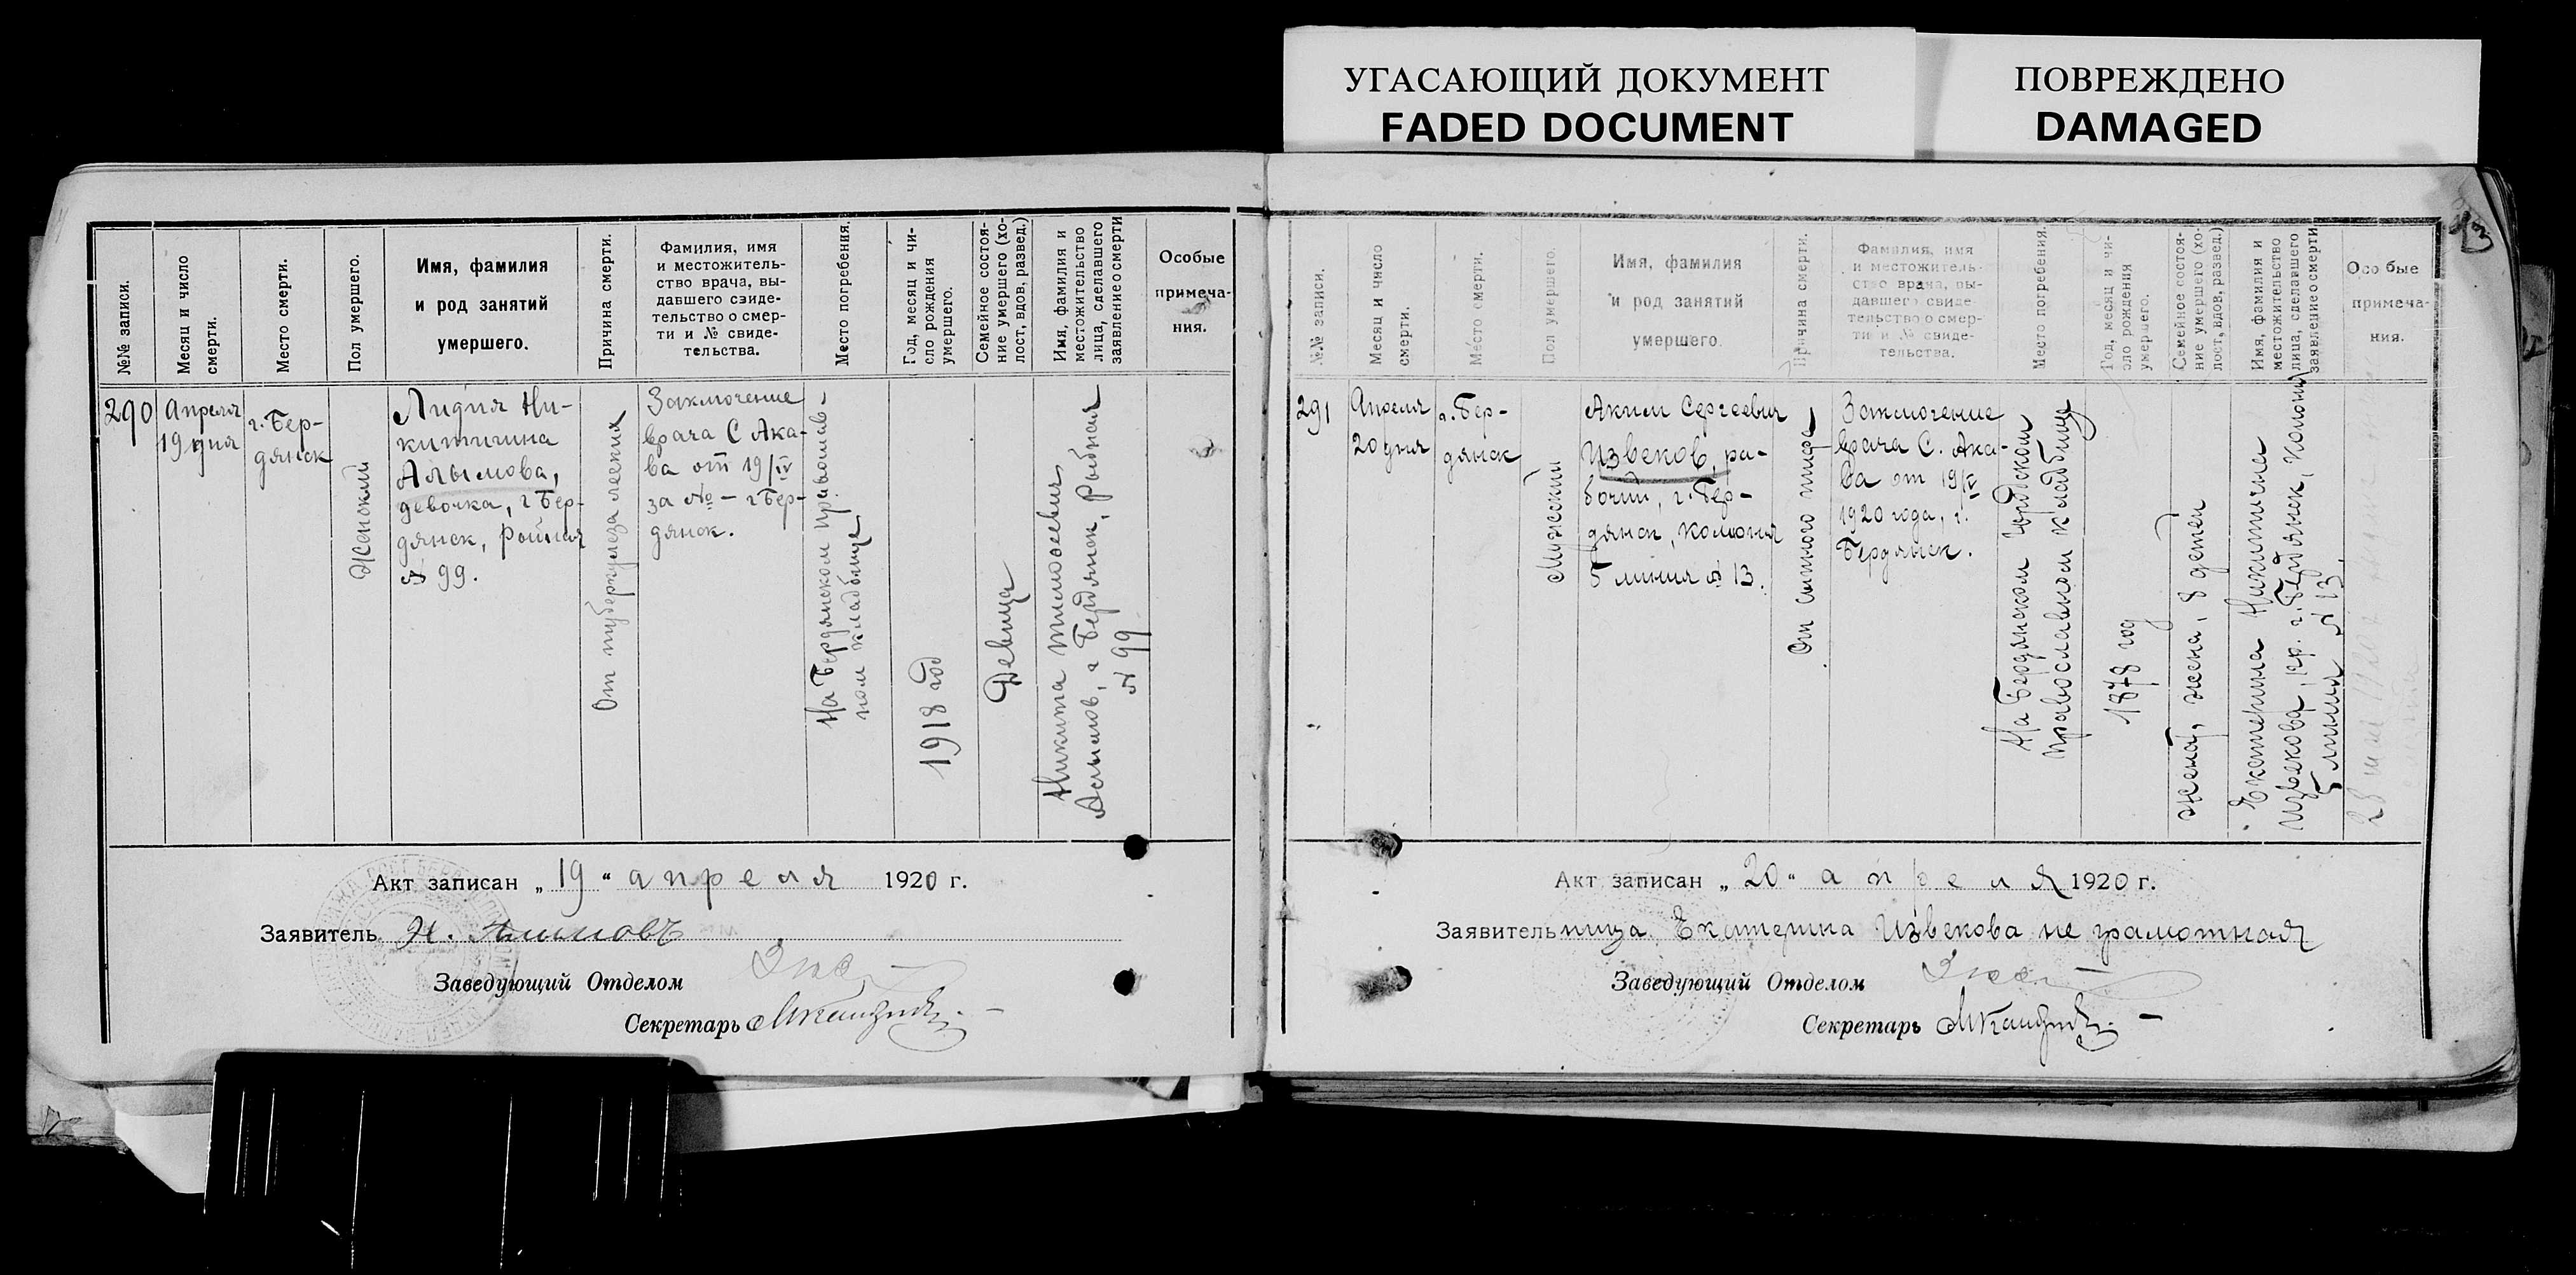 УГАСАЮЩИЙ ДОКУМЕНТ
FADED DOCUMENT
ПОВРЕЖДЕНО
DAMAGED
№№ записи.
Месяц и число
смерти.
Место смерти.
Пол умершего.
Имя, фамилия
и род занятий
умершего.
Причина смерти.
Фамилия, имя
и местожитель-
ство врача, вы-
давшего свиде-
тельство о смер-
ти и № свиде-
тельства.
Место погребения.
Год, месяц и чи-
сло рождения
умершего.
Семейное состоя-
ние умершего (хо-
лост, вдов, развед.)
Имя, фамилия и
местожительство
лица, сделавшего
заявление о смерти
Особые
примеча-
ния.
290
Апреля
19 дня
г. Бер-
дянск
Женский
Лидия Ни-
китична
Алымова,
девочка, г Бер-
дянск,
№ 99.
От туберкулеза легких
Заключение
врача С Ака-
ва от 19/IV
за № — г Бер-
дянск.
На Бердянском православ-
ном кладбище
1918 год
Девица
Никита Тимофеевич
Алымов, г Бердянск, Рыбная
№ 99
Акт записан „ 19 “ апреля 1920 г.
Заявитель Н. Алымовъ
Заведующий Отделом
Секретарь
№№ записи.
Месяц и число
смерти.
Место смерти.
Пол умершего.
Имя, фамилия
и род занятий
умершего.
Причина смерти.
Фамилия, имя
и местожитель-
ство врача, вы-
давшего свиде-
тельство о смер-
ти и № свиде-
тельства.
Место погребения.
Год, месяц и чи-
сло рождения
умершего.
Семейное состоя-
ние умершего (хо-
лост, вдов, развед.)
Имя, фамилия и
местожительство
лица, сделавшего
заявление о смерти.
Особые
примеча-
ния.
291
Апреля
20 дня
г. Бер-
дянск
Мужской
Аким Сергеевич
Извеков, ра-
бочий, г. Бер-
дянск, колония
5 линия № 13.
От сыпного тифа
Заключение
врача С. Ака-
ва от 19/IV
1920 года, г.
Бердянск.
На Бердянском городском
православном кладбище
1878 год
женат, жена, 8 детей
Екатерина Никитична
Извекова, гр. г. Бердянск, колония
5 линия № 13.
Акт записан „ 20 “ апреля 1920 г.
Заявительница Екатерина Извекова не грамотная
Заведующий Отделом
Секретарь